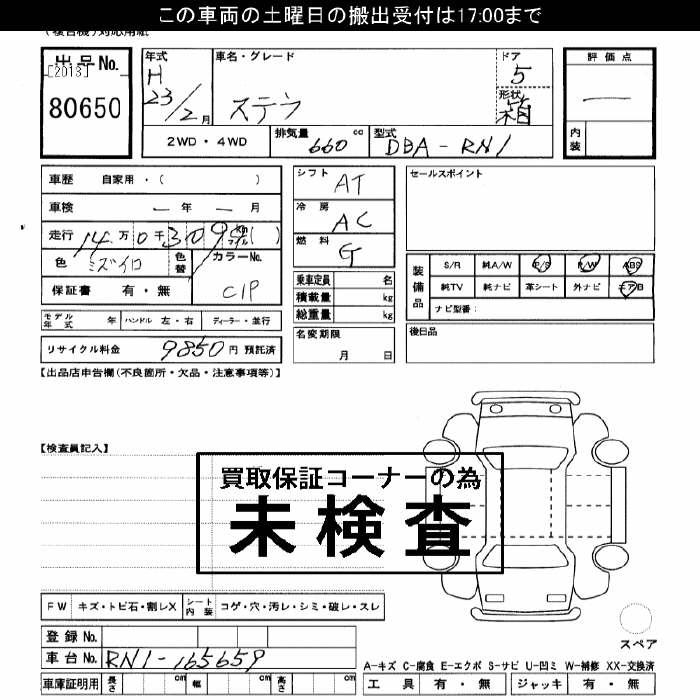 この車両の土曜日の搬出受付は17:00まで
出品No.
[2013]
80650
年式
H
23/2月
車名・グレード
ステラ
ドア
5
形状
箱
2WD・4WD
排気量
660 cc
型式
DBA-RN1
評価点
内装
車歴 自家用・( )
車検 ー年ー月
走行 14万0千309 km マイル ( )
色 ミズイロ
色替
カラーNo.
C1P
保証書 有・無
モデル年式 年
ハンドル 左・右
ディーラー・並行
リサイクル料金 9850円 預託済
シフト AT
冷房 AC
燃料 G
乗車定員 名
積載量 kg
総重量 kg
名変期限
月 日
セールスポイント
装備品
S/R 純A/W P/S P/W ABS
純TV 純ナビ 革シート 外ナビ エアB
ナビ型番:
後日品
【出品店申告欄(不良箇所・欠品・注意事項等)】
【検査員記入】
買取保証コーナーの為
未検査
FW キズ・トビ石・割レX
シート内装 コゲ・穴・汚レ・シミ・破レ・スレ
登録No.
車台No. RN1-165659
車庫証明用 長さ cm 幅 cm 高さ cm
スペア
A-キズ C-腐食 E-エクボ S-サビ U-凹ミ W-補修 XX-交換済
工具 有・無 ジャッキ 有・無